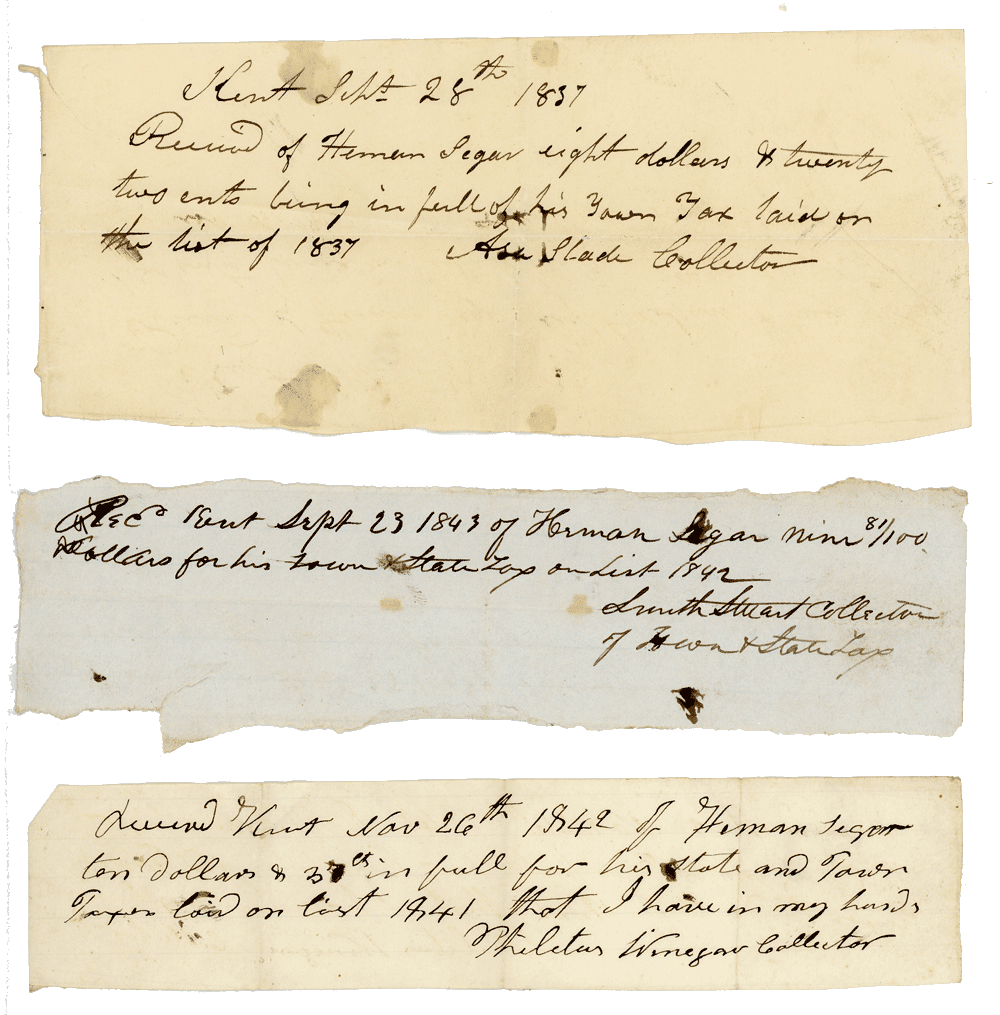 Kent Sept 28th 1837
Received of Heman Segar eight dollars & twenty
two cents being in full of his Town Tax laid on
the list of 1837 Asa Slade Collector
Recd Kent Sept 23 1843 of Herman Segar nine 81/100
Dollars for his Town & State Tax on List 1842
Smith Stuart Collector
of Town & State Tax
Received Kent Nov 26th 1842 of Heman Segar
ten dollars & cts in full for his state and Town
Taxes laid on list 1841 that I have in my hands
Philetus Winegar Collector